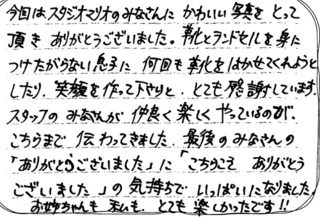 今回はスタジオマリオのみなさんに かわいい 写真を とって
頂き ありがとうございました。靴とランドセルを身に
つけたがらない息子に 何回も 靴をはかせてくれようと
したり、笑顔を作って下やりと、とても感謝しています。
スタッフの みなさんが 仲良く 楽しく やっているのが、
こちらまで 伝わってきました。最後の みなさんの
「ありがとうございました」に「こちらこそ ありがとう
ございました」の 気持ちで いっぱいになりました。
お姉ちゃんも 私も、とても 楽しかったです!!